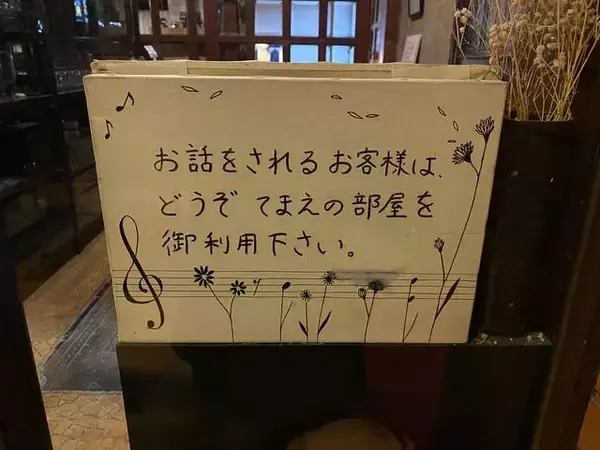 お話をされるお客様は、
どうぞ てまえの部屋を
御利用下さい。